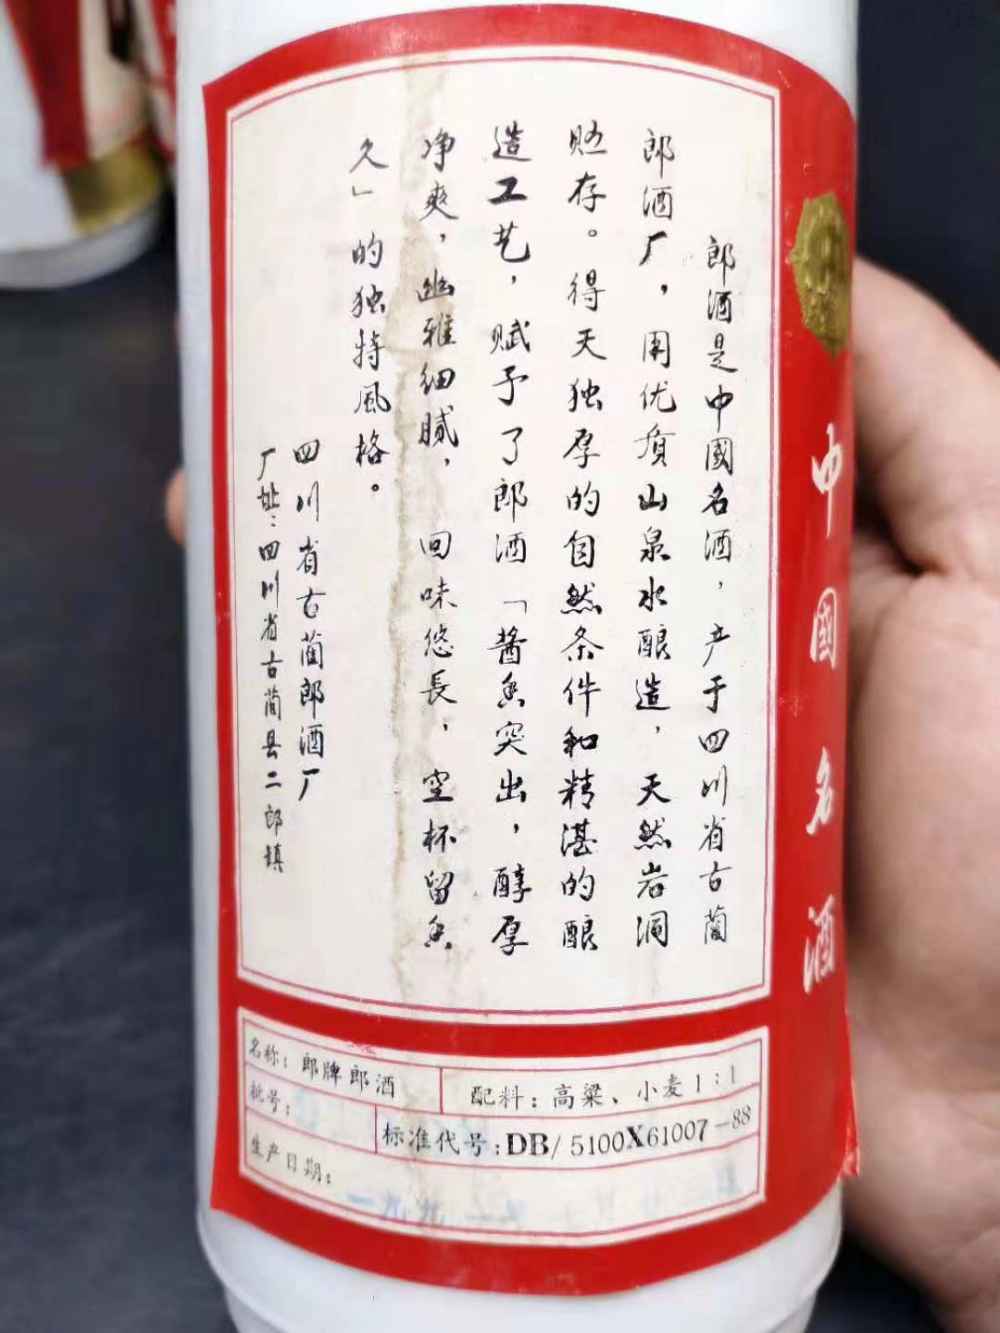 郎酒是中國名酒，产于四川省古蔺
郎酒厂，用优质山泉水酿造，天然岩洞
贮存。得天独厚的自然条件和精湛的酿
造工艺，赋予了郎酒「酱香突出，醇厚
净爽，幽雅细腻，回味悠長，空杯留香
久」的独特風格。
四川省古蔺郎酒厂
厂址：四川省古蔺县二郎镇
中國名酒
名称：郎牌郎酒
配料：高粱、小麦1:1
批号：
标准代号：DB/5100X61007-88
生产日期：